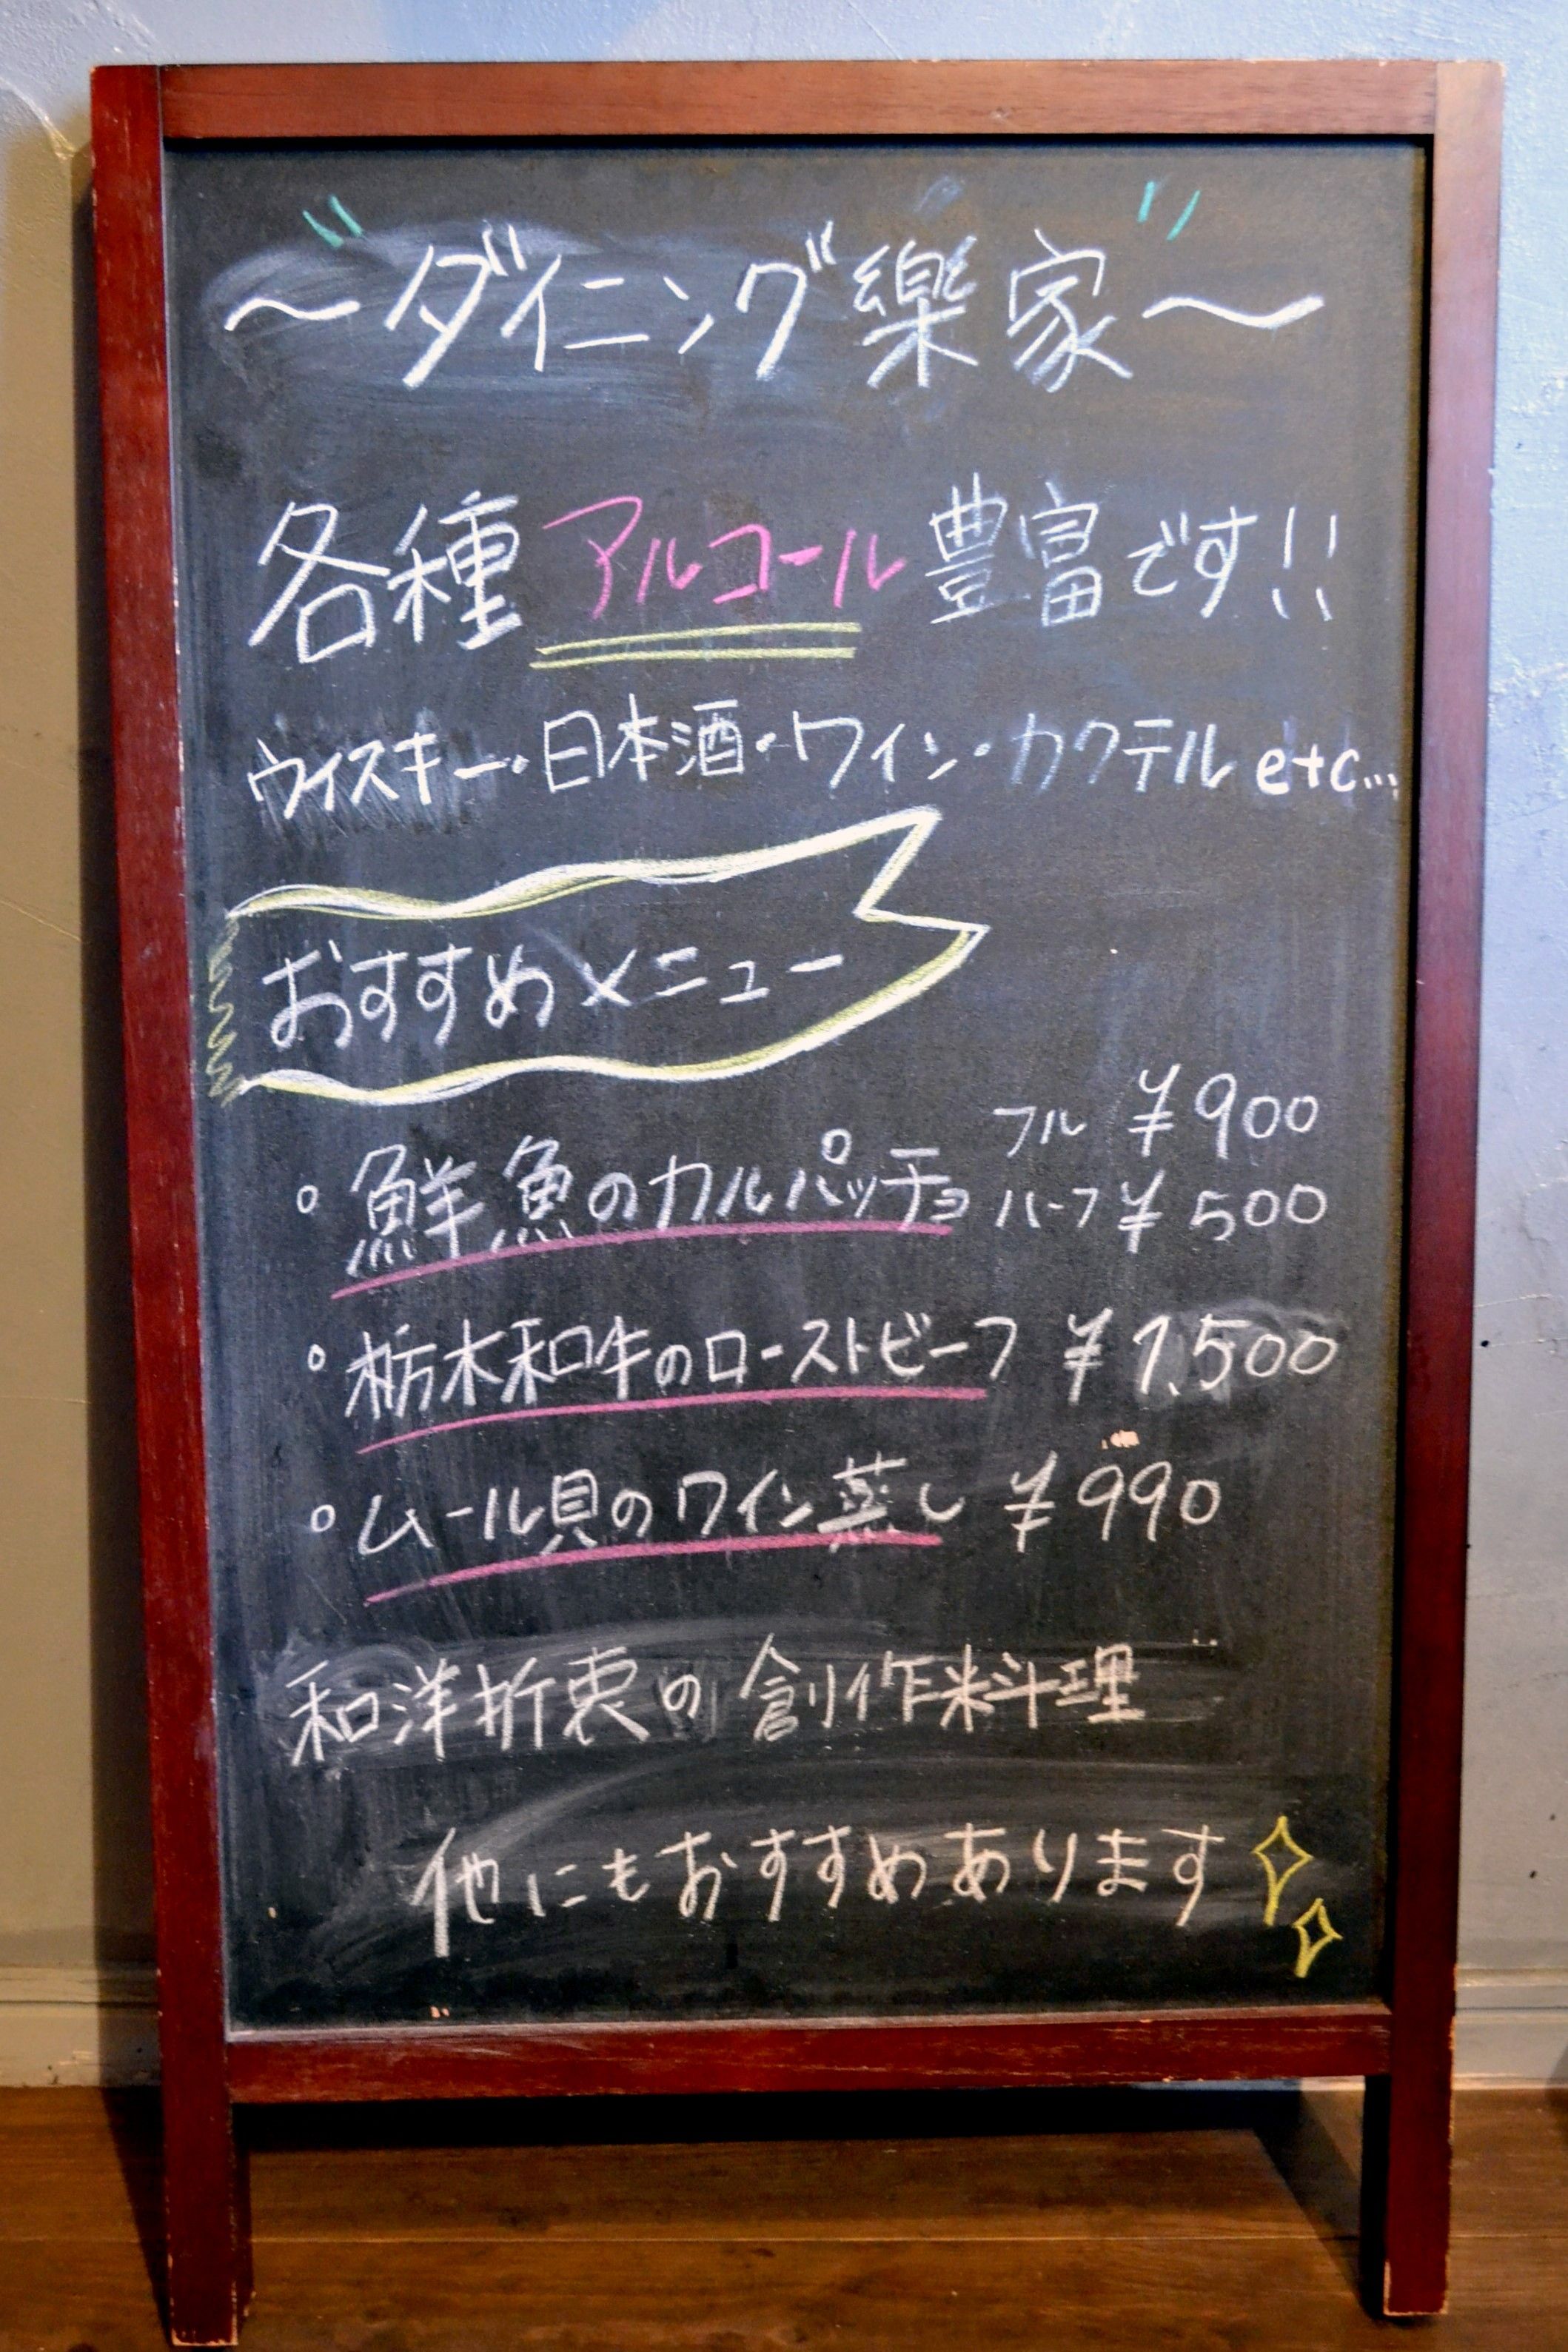 ～ダイニング樂家～
各種アルコール豊富です!!
ウイスキー・日本酒・ワイン・カクテル etc...
おすすめメニュー
フル ¥900
。鮮魚のカルパッチョ ハーフ ¥500
。栃木和牛のローストビーフ ¥1,500
。ムール貝のワイン蒸し ¥990
和洋折衷の創作料理
他にもおすすめあります